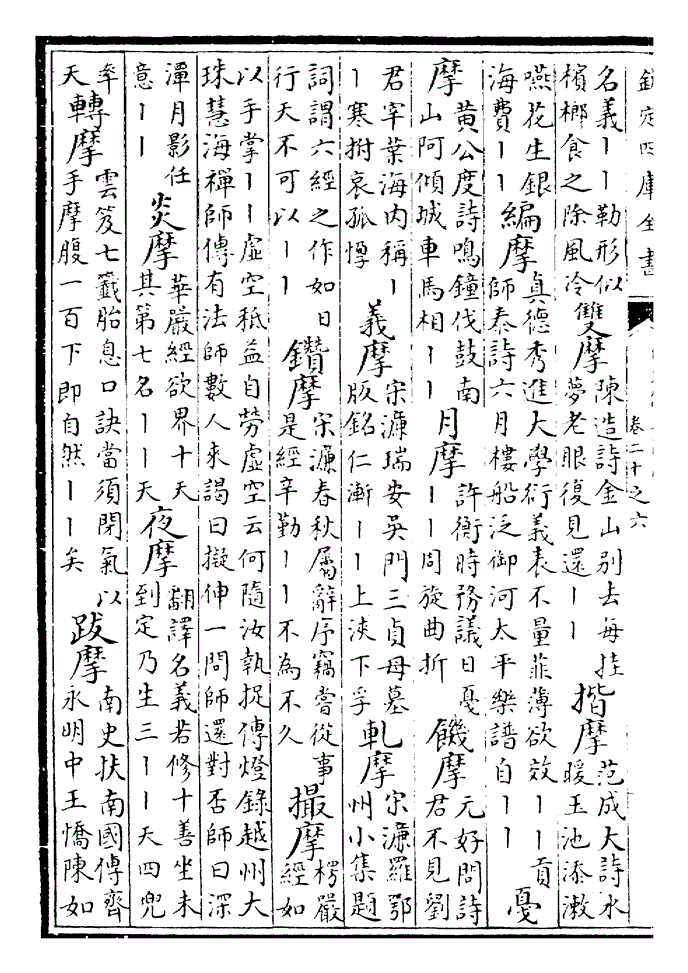 欽定四庫全書
卷二十之六
名義丨丨勒形似
檳榔食之除風冷
雙摩
陳造詩金山别去每挂
夢老眼復見還丨丨
揩摩
范成大詩水
暖玉池添漱
嚥花生銀
海費丨丨
編摩
真德秀進大學衍義表不量菲薄欲效丨丨貢
師泰詩六月樓船泛御河太平樂譜自丨丨
憂
摩
黄公度詩鳴鐘伐鼓南
山阿傾城車馬相丨丨
月摩
許衡時務議日憂
丨丨周旋曲折
饑摩
元好問詩
君不見劉
君宰葉海内稱丨
丨寒拊哀孤惸
義摩
宋濂瑞安吳門三貞母墓
版銘仁漸丨丨上浹下孚
軋摩
宋濂羅鄂
州小集題
詞謂六經之作如日
行天不可以丨丨
鑽摩
宋濂春秋屬辭序竊嘗從事
是經辛勤丨丨不為不久
撮摩
楞嚴
經如
以手掌丨丨虛空秪益自勞虛空云何隨汝執捉傳燈錄越州大
珠慧海禪師傳有法師數人來謁曰擬伸一問師還對否師曰深
潭月影任
意丨丨
炎摩
華嚴經欲界十天
其第七名丨丨天
夜摩
翻譯名義若修十善坐未
到定乃生三丨丨天四兜
率
天
轉摩
雲笈七籤胎息口訣當須閉氣以
手摩腹一百下即自然丨丨矣
跋摩
南史扶南國傳齊
永明中王憍陳如